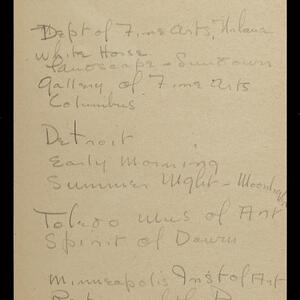 Dept of Fine Arts Urbana
White Horse
Landscape - Sundown
Gallery of Fine Arts
Columbus
Detroit
Early Morning
Summer Night - Moonlight
Toledo Mus of Art
Spirit of Dawn
Minneapolis Inst of Art